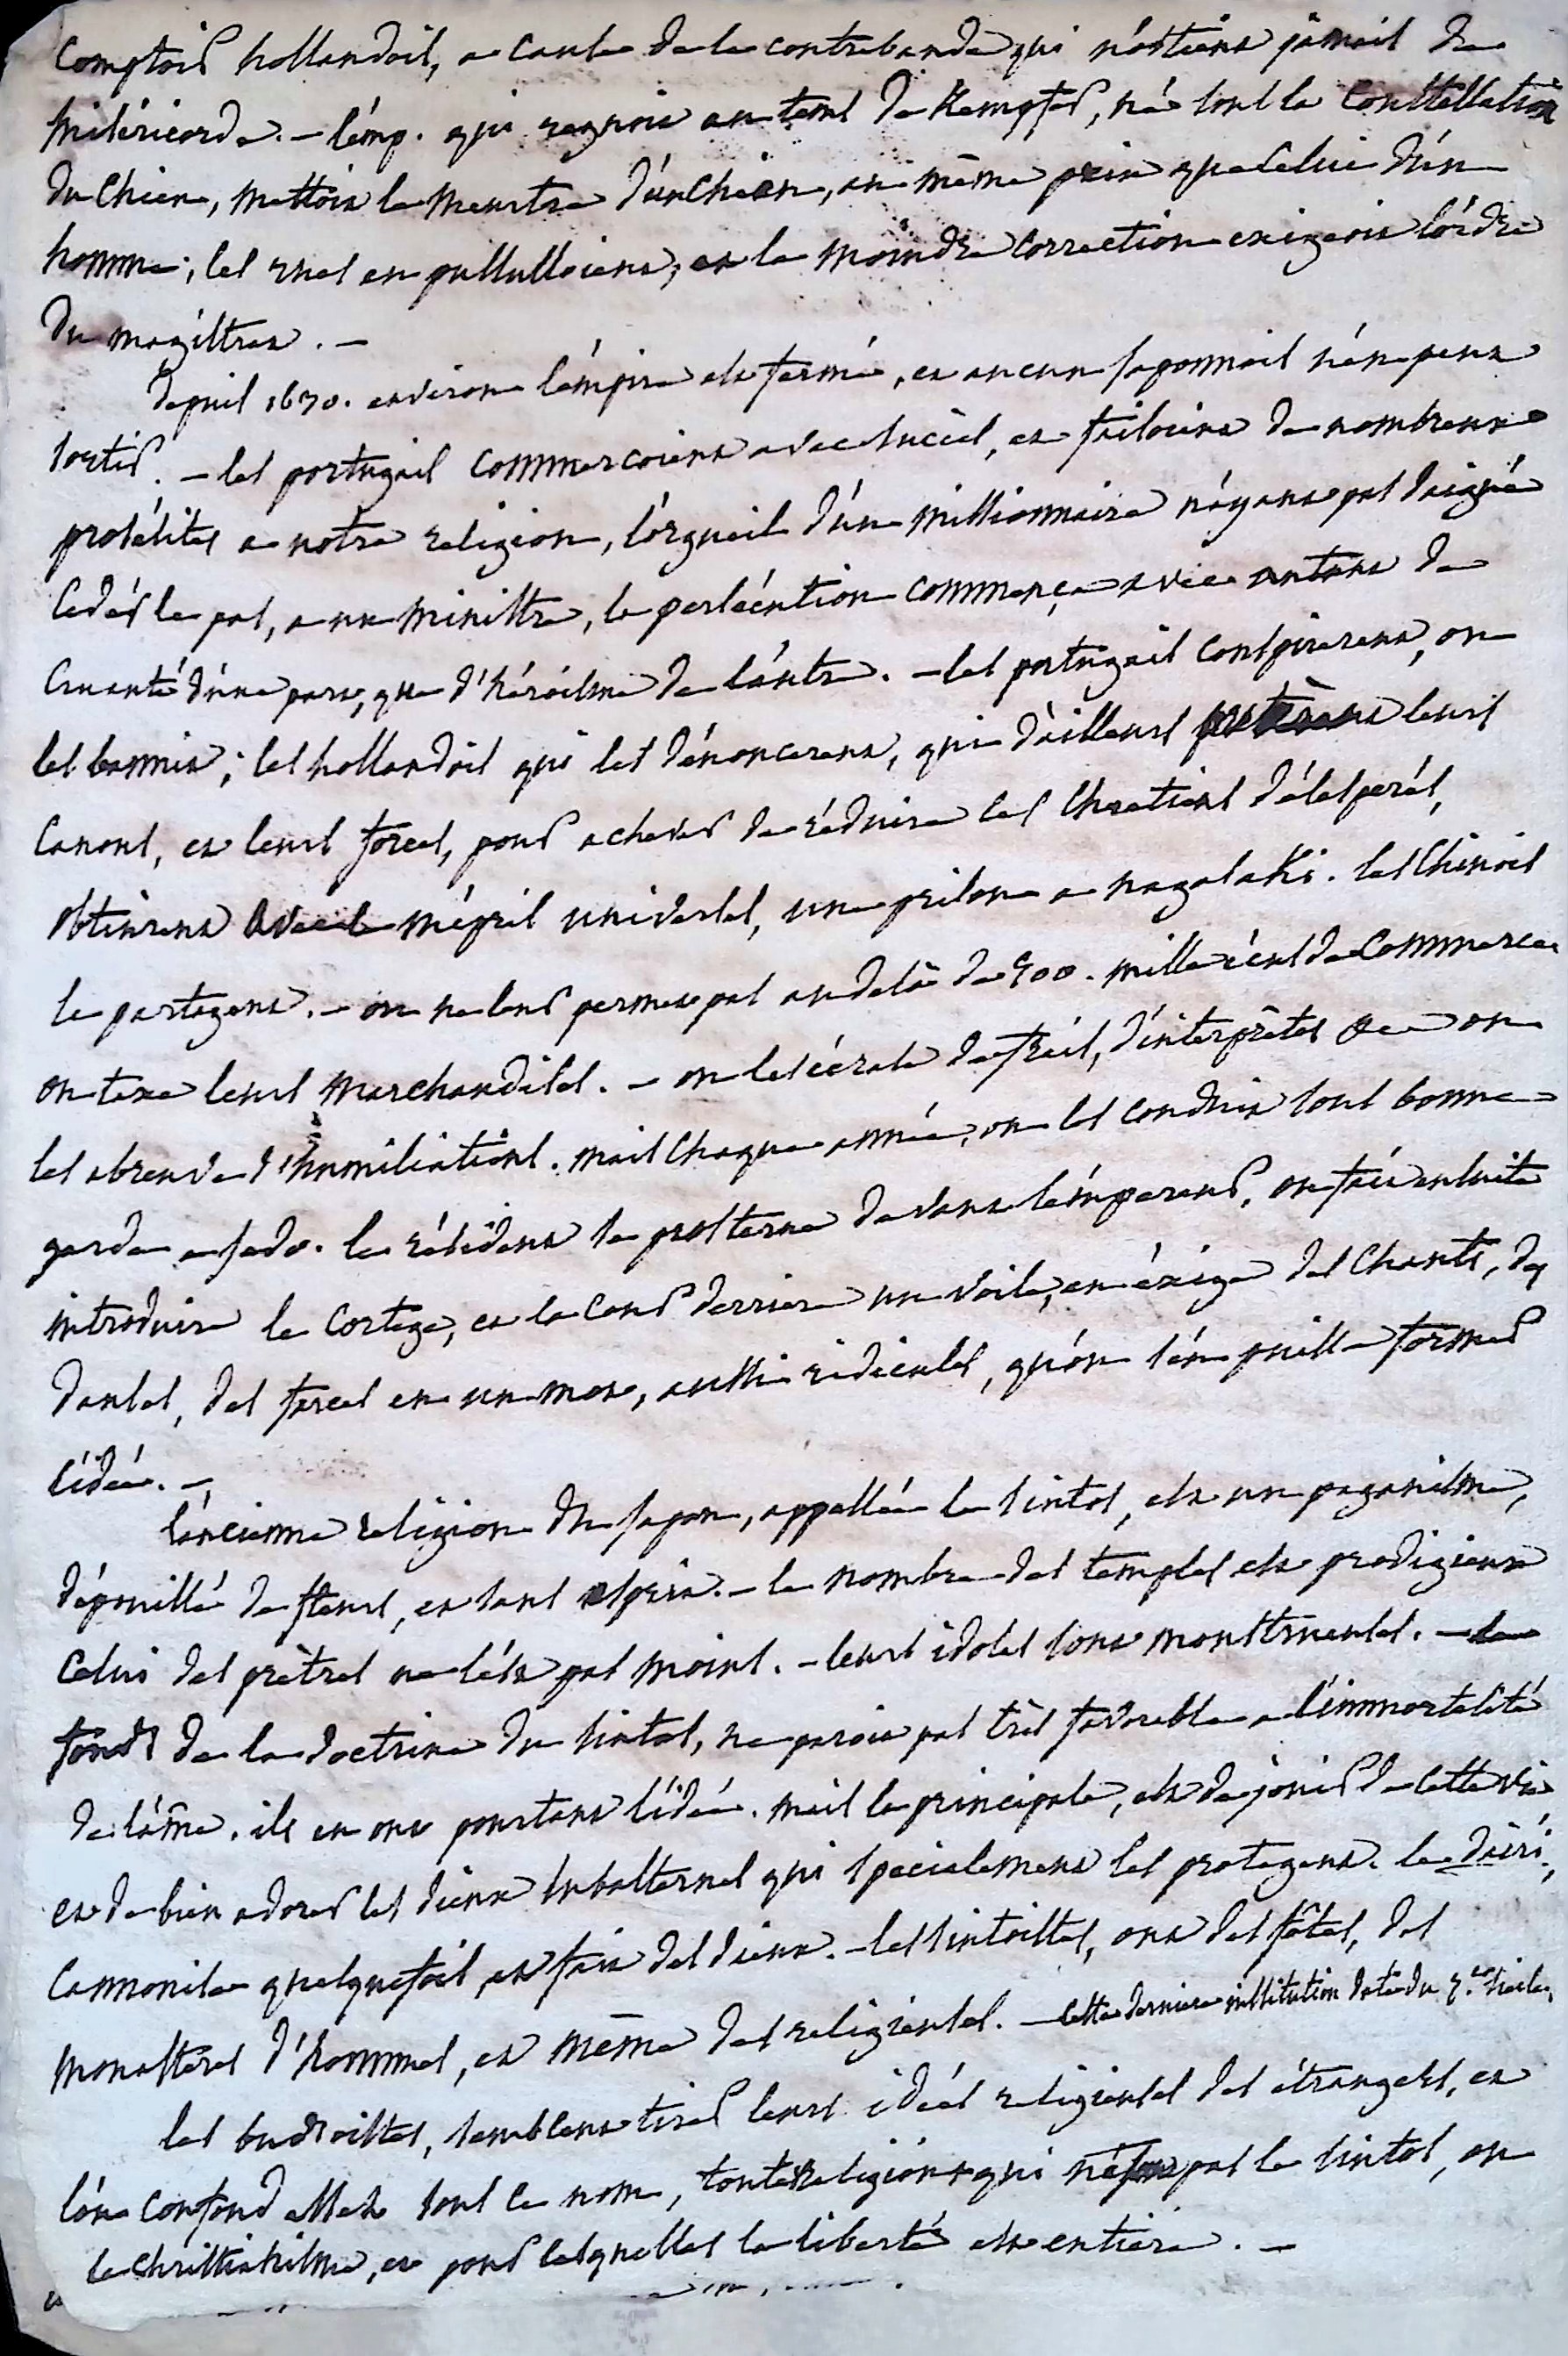 Comptoir hollandois, a cause de la contrebande qui n'obtient jamais de
miséricorde. – l'emp. qui regnoit au tems de Kempfer, né sous la constellation
du chien, mettoit le meurtre d'un chien, au même prix que celui d'un
homme; les rues en pullulloient, et la moindre correction exigeoit l'ordre
du magistrat. –
depuis 1630. environ l'empire est fermé, et aucun japonnois n'en peut
sortir. – les portugais commercoient avec succès, et faisoient de nombreux
prosélites a notre religion, l'orgueil d'un missionnaire n'ayant pas daigné
ceder le pas, a un ministre, la persécution commença avec autant de
cruauté d'une part, que d'héroisme de l'autre. – les portugais conspirerent, on
les bannit; les hollandois qui les dénoncerent, qui d'ailleurs prêterent leurs
canons, et leurs forces, pour achever de réduire les chretiens désesperés,
obtinrent avec le mépris universel, une prison a nagasaki. les chinois
le partagent. – on ne leur permet pas au delà de 900. mille écus de commerce
on taxe leurs marchandises. – on les écrase de frais, d'interprètes &c on
les abreuve d'humiliations. mais chaque année, on les conduit sous bonne
garde a jedo. le résident se prosterne devant l'empereur, on fait ensuite
introduire le cortege, et la cour derriere un voile, en éxige des chants, des
danses, des farces en un mot, aussi ridicules, qu'on s'en puisse former
l'idée. –
l'ancienne religion du japon, appellée le sintos, est un paganisme,
dépouillé de fleurs, et sans esprit. – le nombre des temples est prodigieux
celui des prêtres ne l'est pas moins. – leurs idoles sont monstrueuses. – le
fonds de la doctrine du sintos, ne paroit pas très favorable a l'immortalité
de l'âme. ils en ont pourtant l'idée. mais le principale, est de jouir de cette vie
et de bien adorer les dieux subalternes qui specialement les protegent. le dairi,
cannonise quelquefois, et fait des dieux. – les sintoistes, ont des fêtes, des
monasteres d'hommes, et même des religieuses. – cette derniere institution date du 7.e siecle,
les budsoistes, semblent tirer leurs idées religieuses des étrangers, et
l'on confond assez sous ce nom, toutes religions qui pas le sintos, ou
le christianisme, et pour lesquelles la liberté est entiere. –